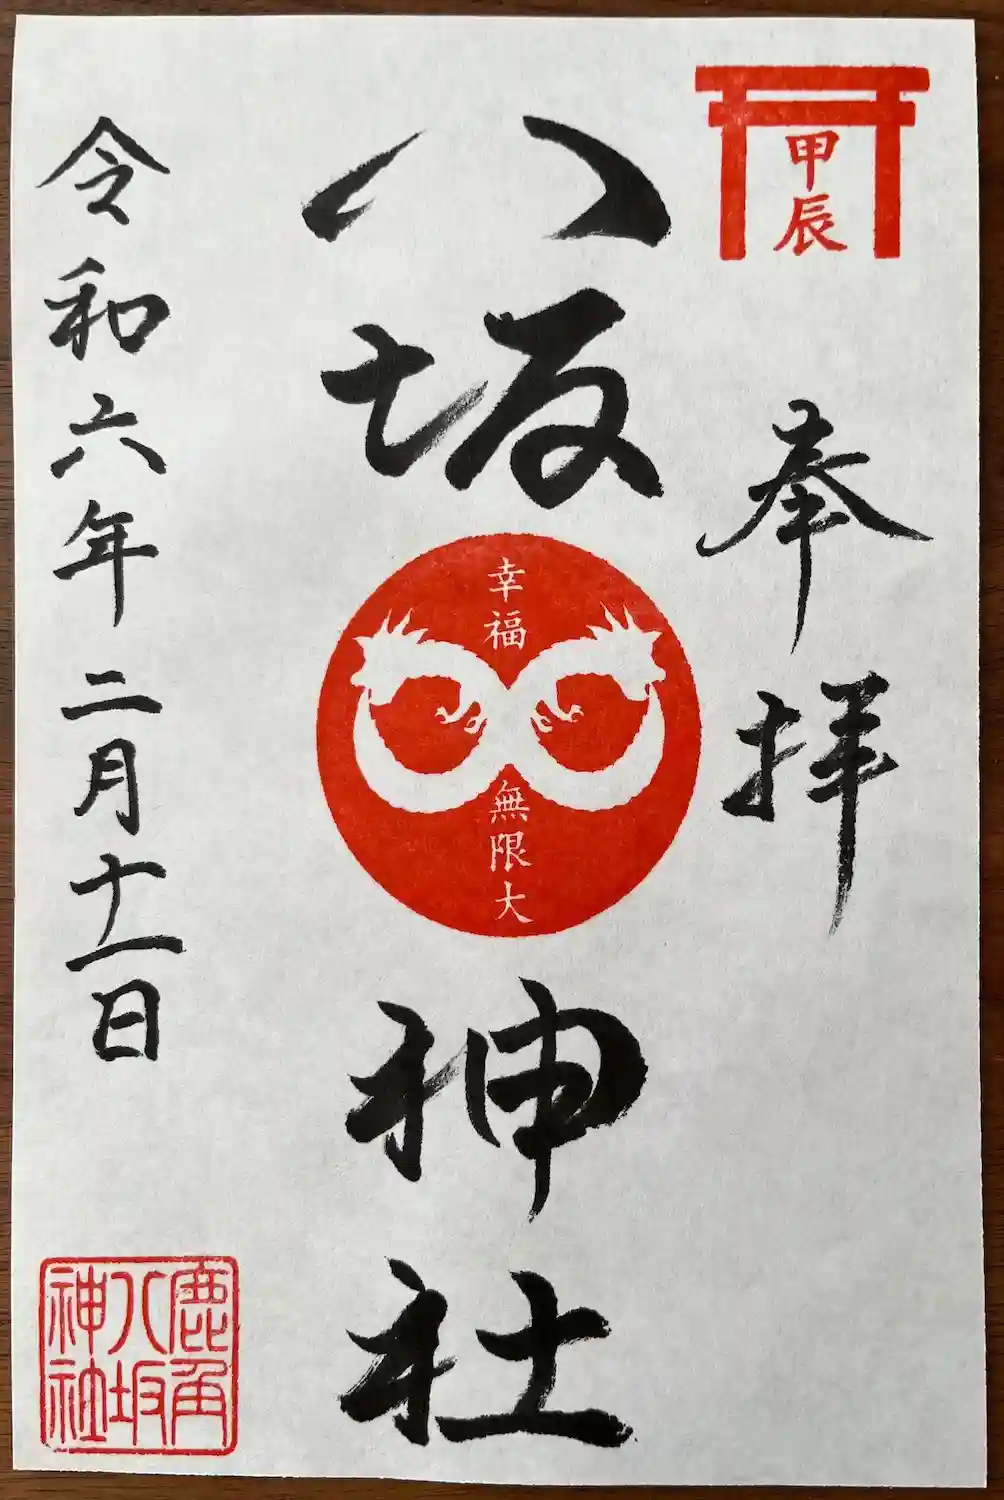 甲辰
奉拝
八坂神社
幸福
無限大
令和六年二月十一日
鹿角
八坂
神社